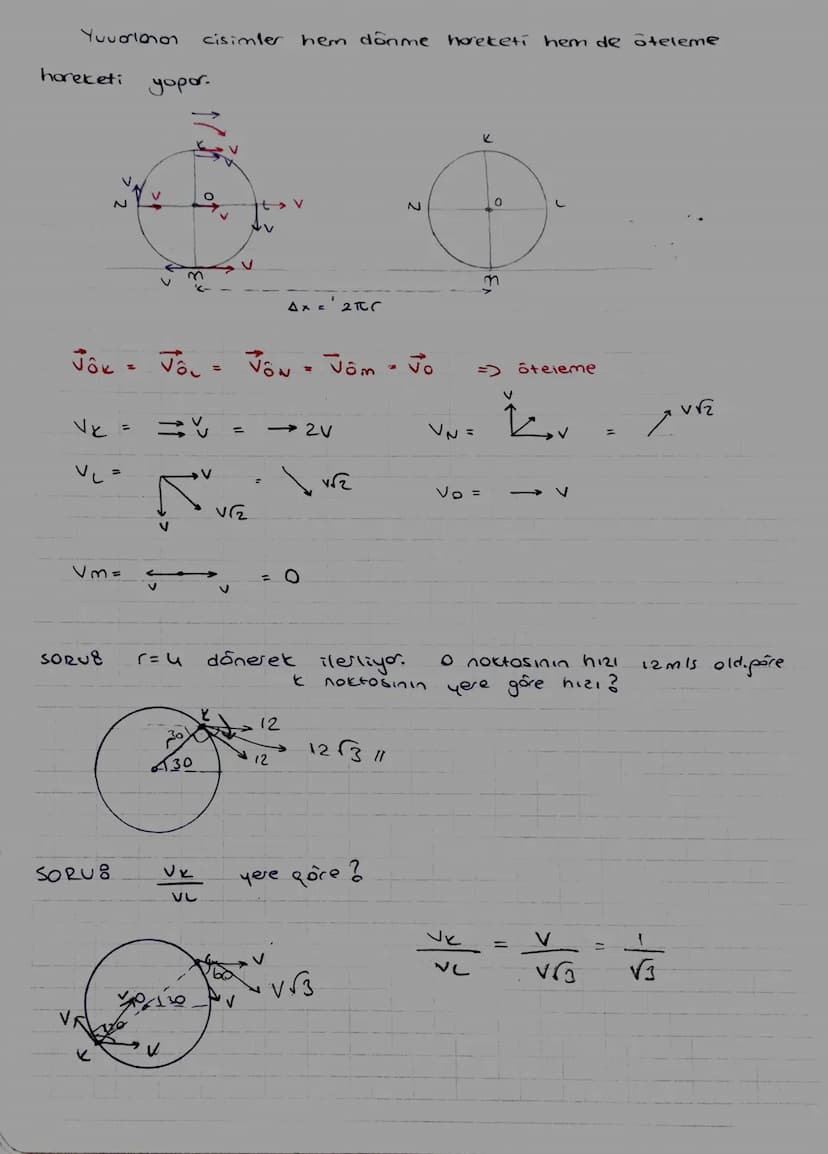 Yuvarlanan cisimler hem dönme hareketi hem de öteleme
hareketi yapar.
K V
V
V V
N O L V
V V
V M V
K
N O L
M
Δx = 2πr
VÖK = VÖL = VÖN = VÖM = VO => öteleme
VK = V V = → 2V
VN = V V = V√2
VL = V V V√2 = V√2
VO = → V
VM = V V = 0
SORU: r=4 dönerek ilerliyor. O noktasının hızı 12 m/s old.göre
K noktasının yere göre hızı?
K 12
30 12 12√3 //
30
SORU: VK/VL yere göre?
VK/VL = V/V√3 = 1/√3
V
60 V√3
V
V 120
K V